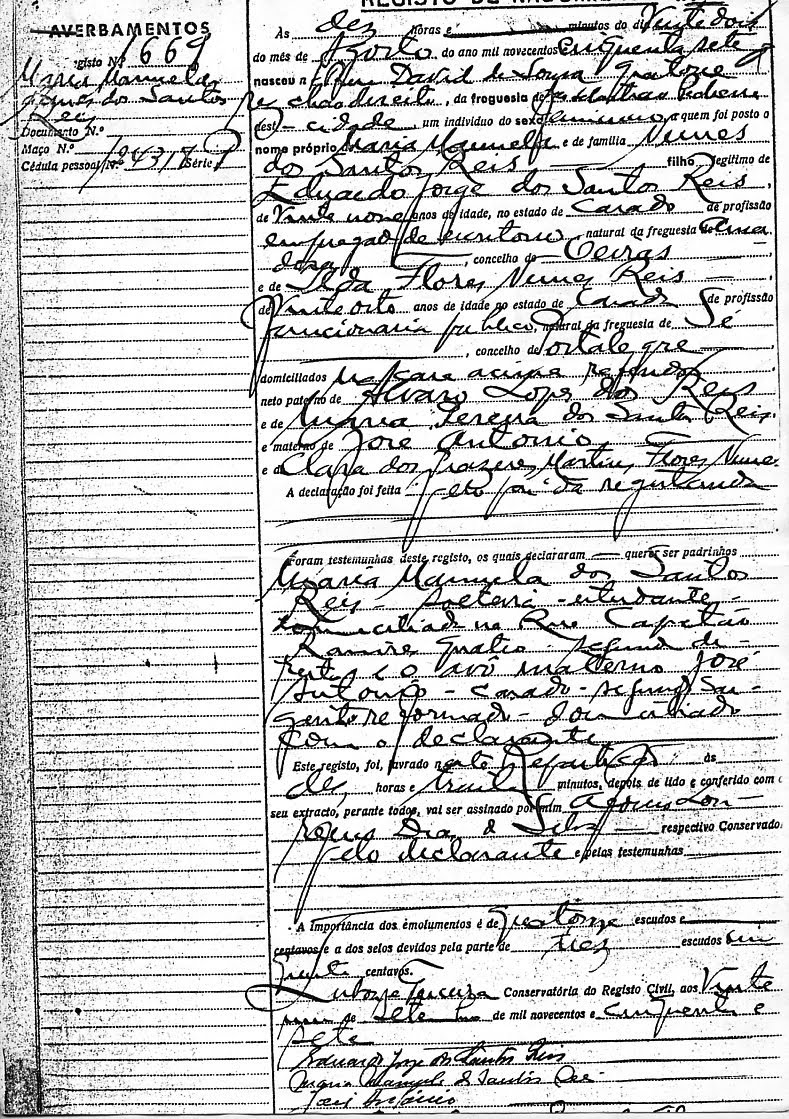 REGISTO DE NASCIME
AVERBAMENTOS
Às dez horas e minutos do dia Vinte dois
gisto N.º 1669
do mês de Agosto do ano mil novecentos e cinquenta e sete
Maria Manuela
nasceu n Rua David de Sousa quatorze
Nunes dos Santos
r/c chão direito, da freguesia de
Reis
desta cidade, um indivíduo do sexo feminino a quem foi posto o
Documento N.º
nome próprio Maria Manuela e de família Nunes
Maço N.º
dos Santos Reis filho legítimo de
Cédula pessoal N.º 194317 Série
Eduardo Jorge dos Santos Reis,
de Vinte nove anos de idade, no estado de casado de profissão
empregado de escritorio, natural da freguesia de Ama
dora, concelho de Oeiras
e de Ilda Flores Nunes Reis
de Vinte oito anos de idade no estado de casada de profissão
funcionaria publica, natural da freguesia de Sé
, concelho de Portalegre
domiciliados na casa acima referida
neto paterno de Alvaro Lopes dos Reis
e de Maria Pereira dos Santos Reis.
e materno de José Antonio,
e d Clara dos Prazeres Martins Flores Nunes
A declaração foi feita pelo pai da registanda
Foram testemunhas deste registo, os quais declararam querer ser padrinhos
Maria Manuela dos Santos
Reis - solteira - estudante -
domiciliada na Rua Capitão
Ramires quatro - segundo di-
reito e o avô materno José
Antonio - casado - segundo Sar-
gento reformado - domiciliado
com o declarante
Este registo, foi, lavrado nesta Repartição às
dez horas e trinta minutos, depois de lido e conferido com o
seu extracto, perante todos, vai ser assinado por mim Afonso Lou-
renço Dias da Silva respectivo Conservado
pelo declarante e pelas testemunhas
A importância dos emolumentos é de quatorze escudos e
centavos e a dos selos devidos pela parte de tres escudos e
centavos.
Lisboa Terceira Conservatória do Registo Civil, aos Vinte
um de Setembro de mil novecentos e cinquenta e
sete
Eduardo Jorge dos Santos Reis
Maria Manuela d Santos Reis
José Antonio